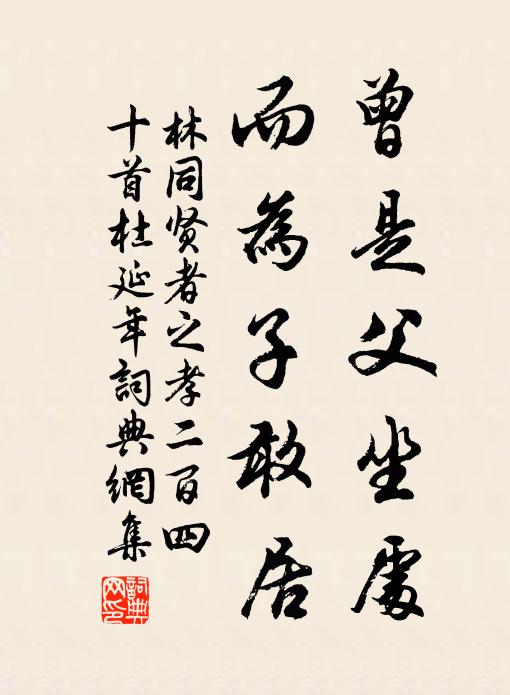 曾是父坐處
而為子敢居
林同贤者之孝二百四
十首杜延年詞典網集
詞典
网印